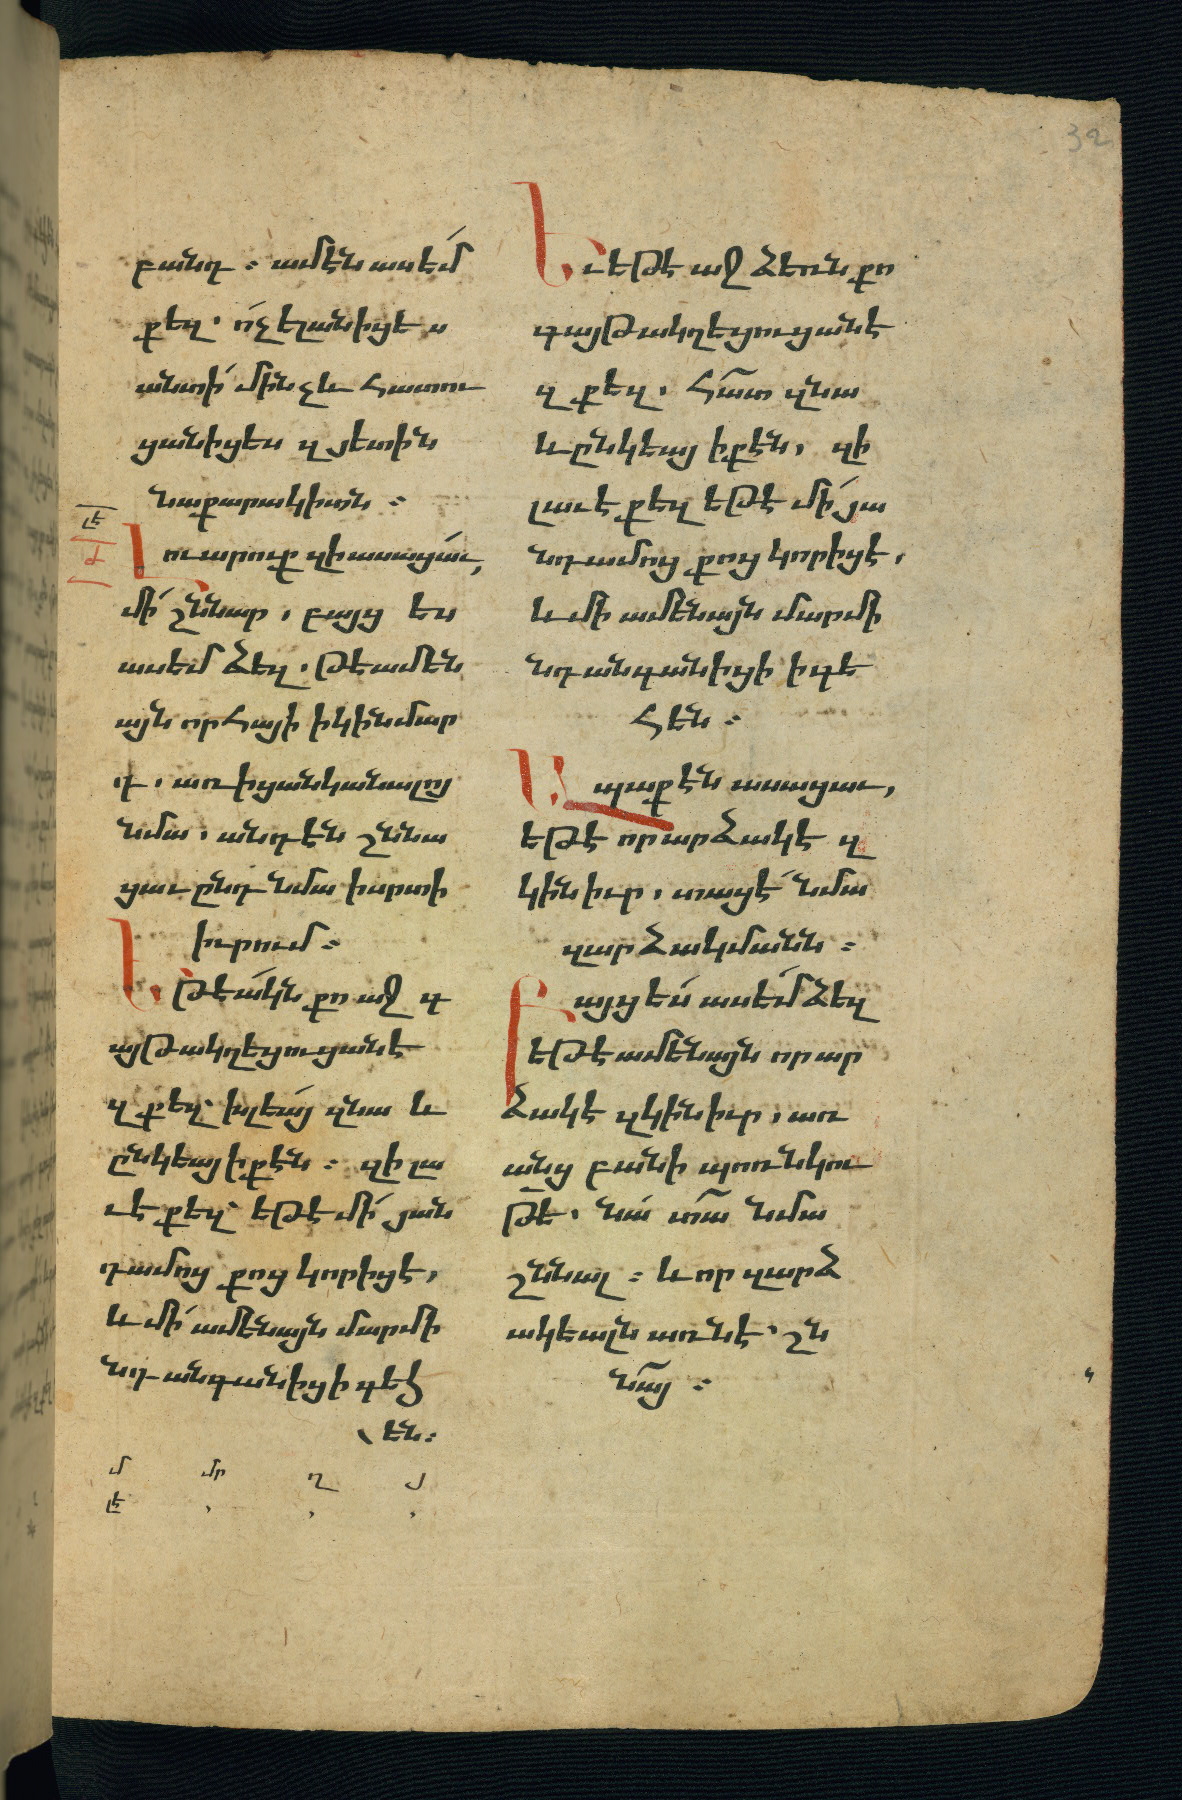 32
բանդ։ ամէն ասեմ
քեզ. ո՛չ ելանիցես
անտի՛ մինչև հատու
ցանիցես զյետին
նաքարակիտն։
լէ
Լուարուք զի ասացաւ,
մի՛ շննար, բայց ես
ասեմ ձեզ. թե ամեն
այն որ հայի ի կին մար
դ. առ ի ցանկանալոյ
նմա. անդէն շննա
ցաւ ընդ նմա ի սրտի
իւրում։
Եթե ակն քո աջ գ
այթակղեցուցանե
զքեզ՝ խլեա՛յ զնա և
ընկեայ ի քէն։ զի լա
ւէ քեզ՝ եթե մի՛ յան
դամոց քոց կորիցէ,
և մի՛ ամենայն մարմի
նդ անգանիցի ի գեհ
են։
մ մր ղ յ
լէ
Եւ եթէ աջ ձեռն քո
գայթակղեցուցանէ
զքեզ. հատ զնա
և ընկեայ ի քէն, զի
լաւ է քեզ եթէ մի՛ յա
նդամոց քոց կորիցէ,
և մի ամենայն մարմի
նդ անգանիցի ի գե
հեն։
Այլ աքէն ասացաւ,
եթէ որ արձակէ զ
կին իւր, տացէ՛ նմա
զարձակմանն։
Բայց ես ասեմ ձեզ
եթէ ամենայն որ ար
ձակէ զկին իւր, առ
անց բանի պոռնկու
թե. նա՛ տա՛ նմա
շննալ։ և որ զարձ
ակեալն առնէ՝ շն
նայ։